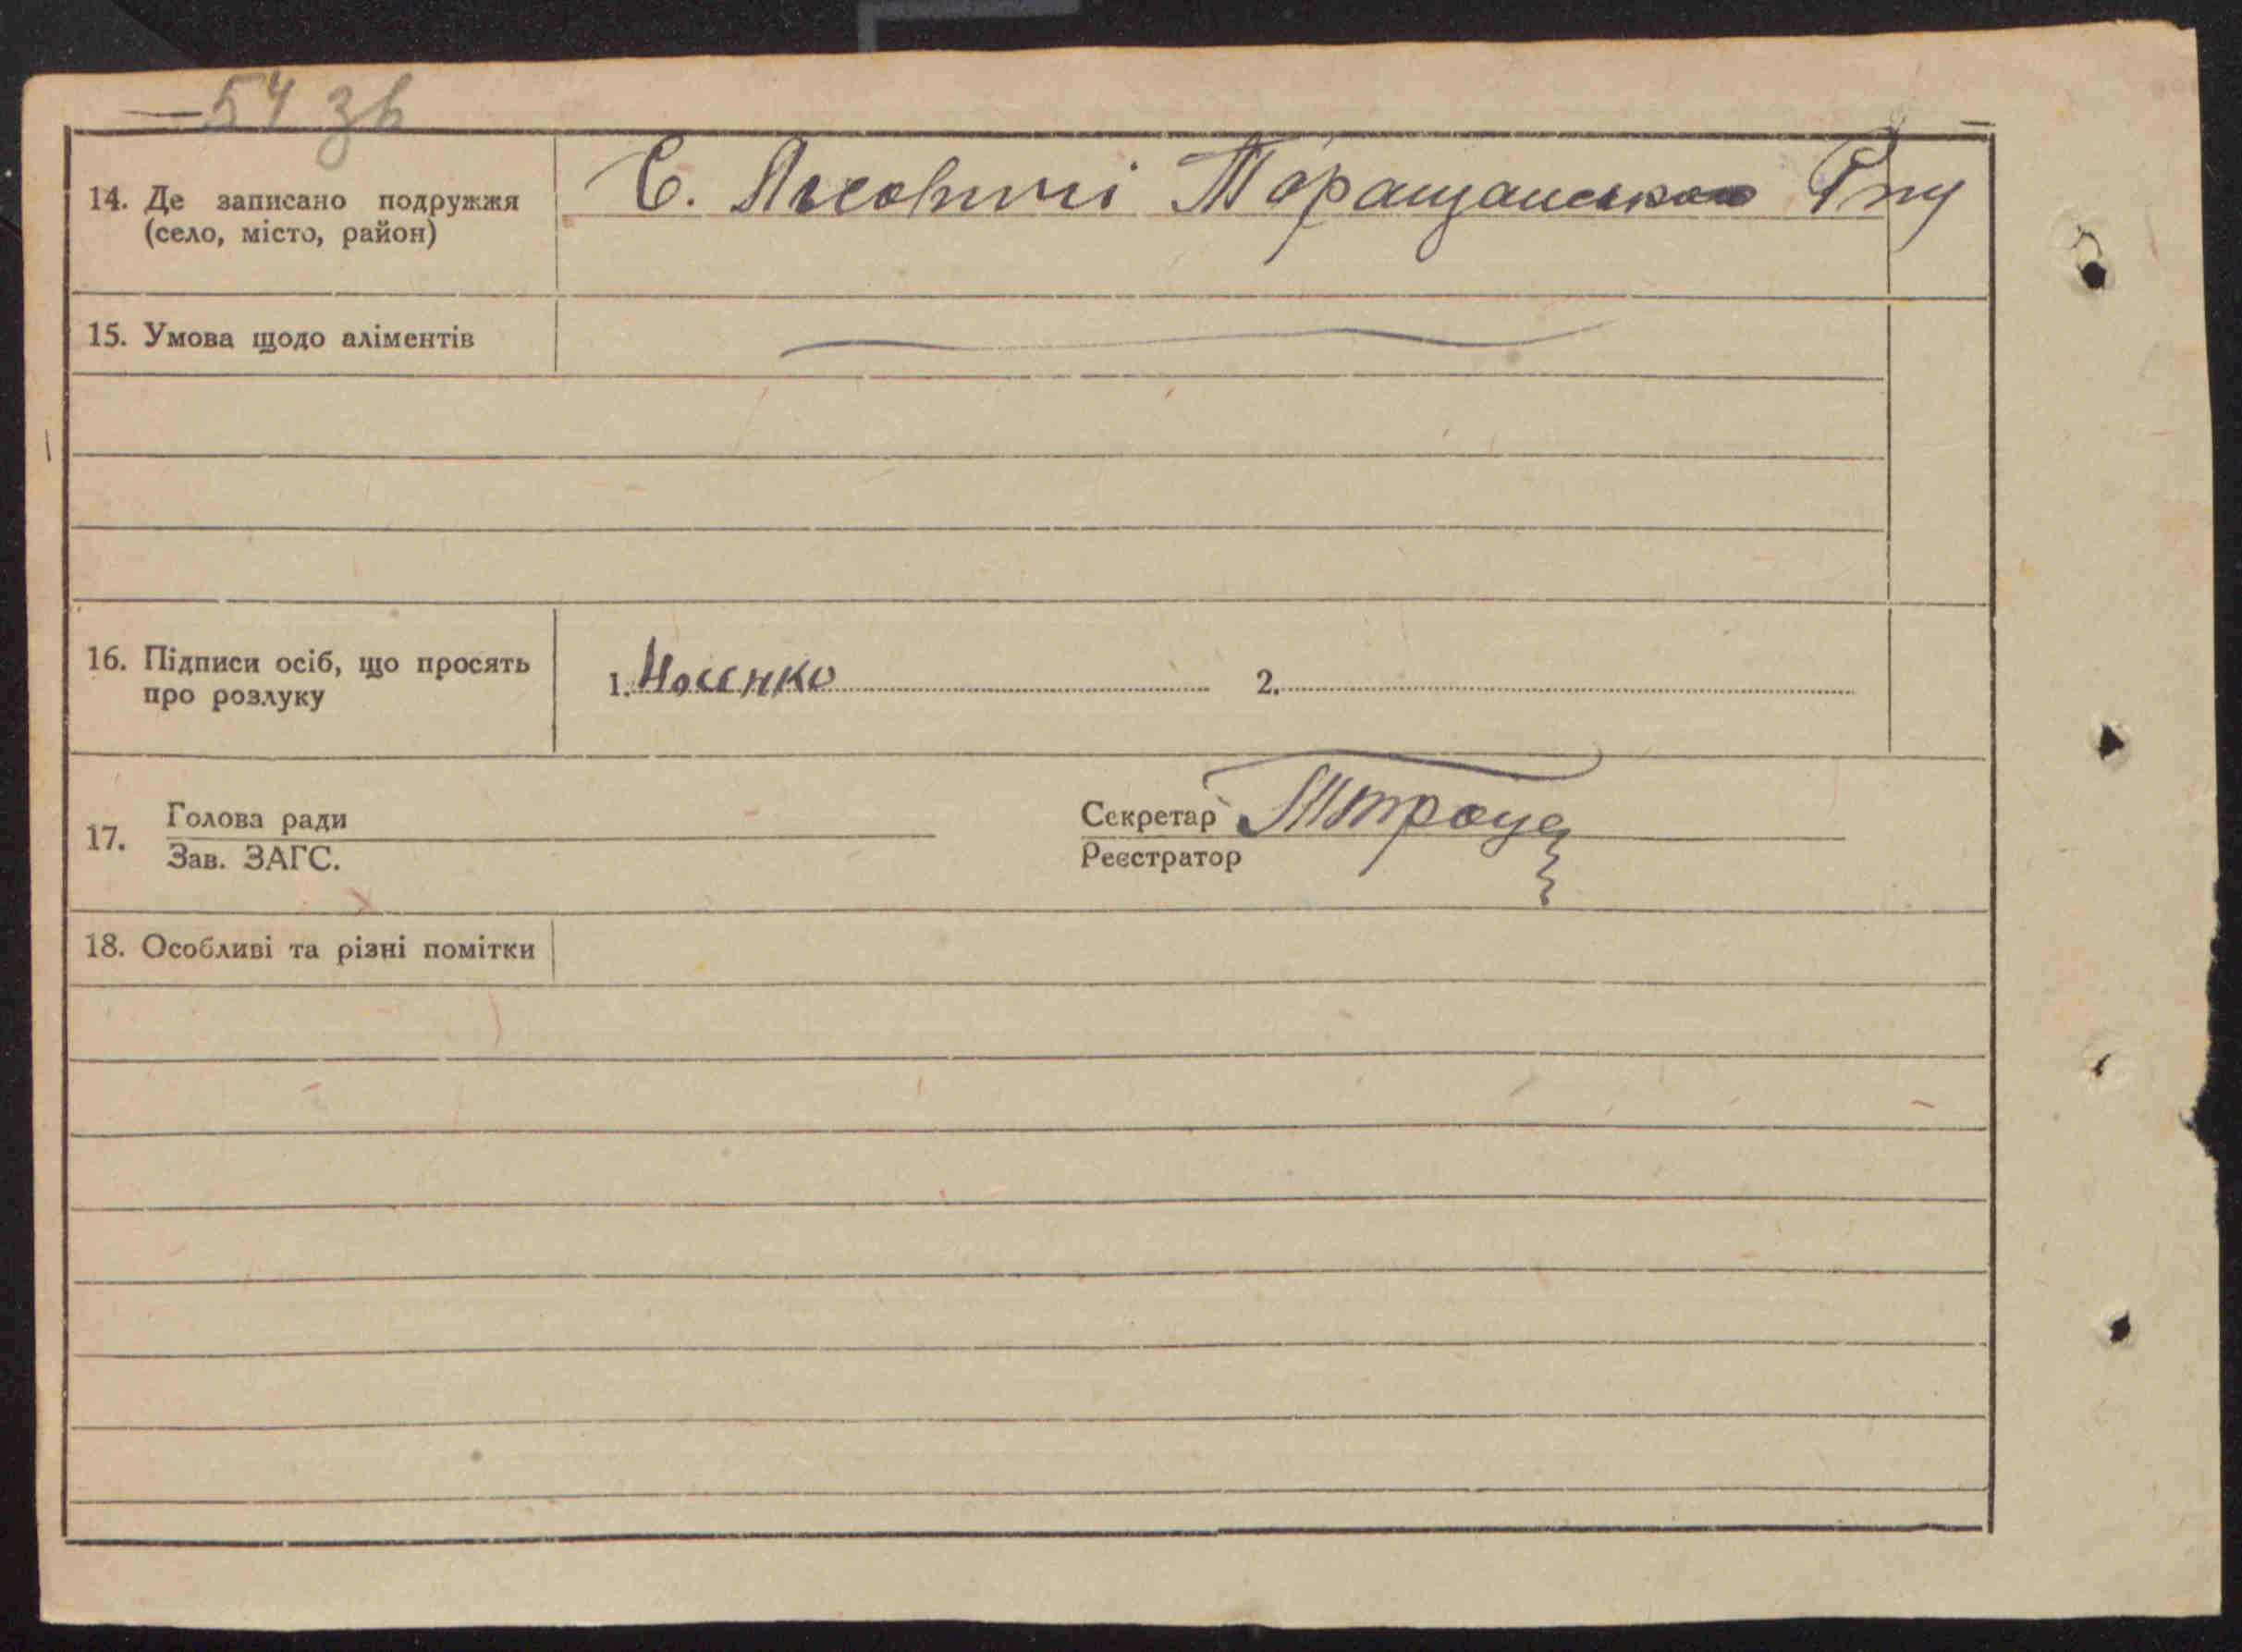 54 зв
14. Де записано подружжя С. Лісовичі Таращанського Р-ну
(село, місто, район)
15. Умова щодо аліментів
16. Підписи осіб, що просять
про розлуку
1. Носенко 2.
17. Голова ради
Зав. ЗАГС.
Секретар
Реєстратор
18. Особливі та різні помітки